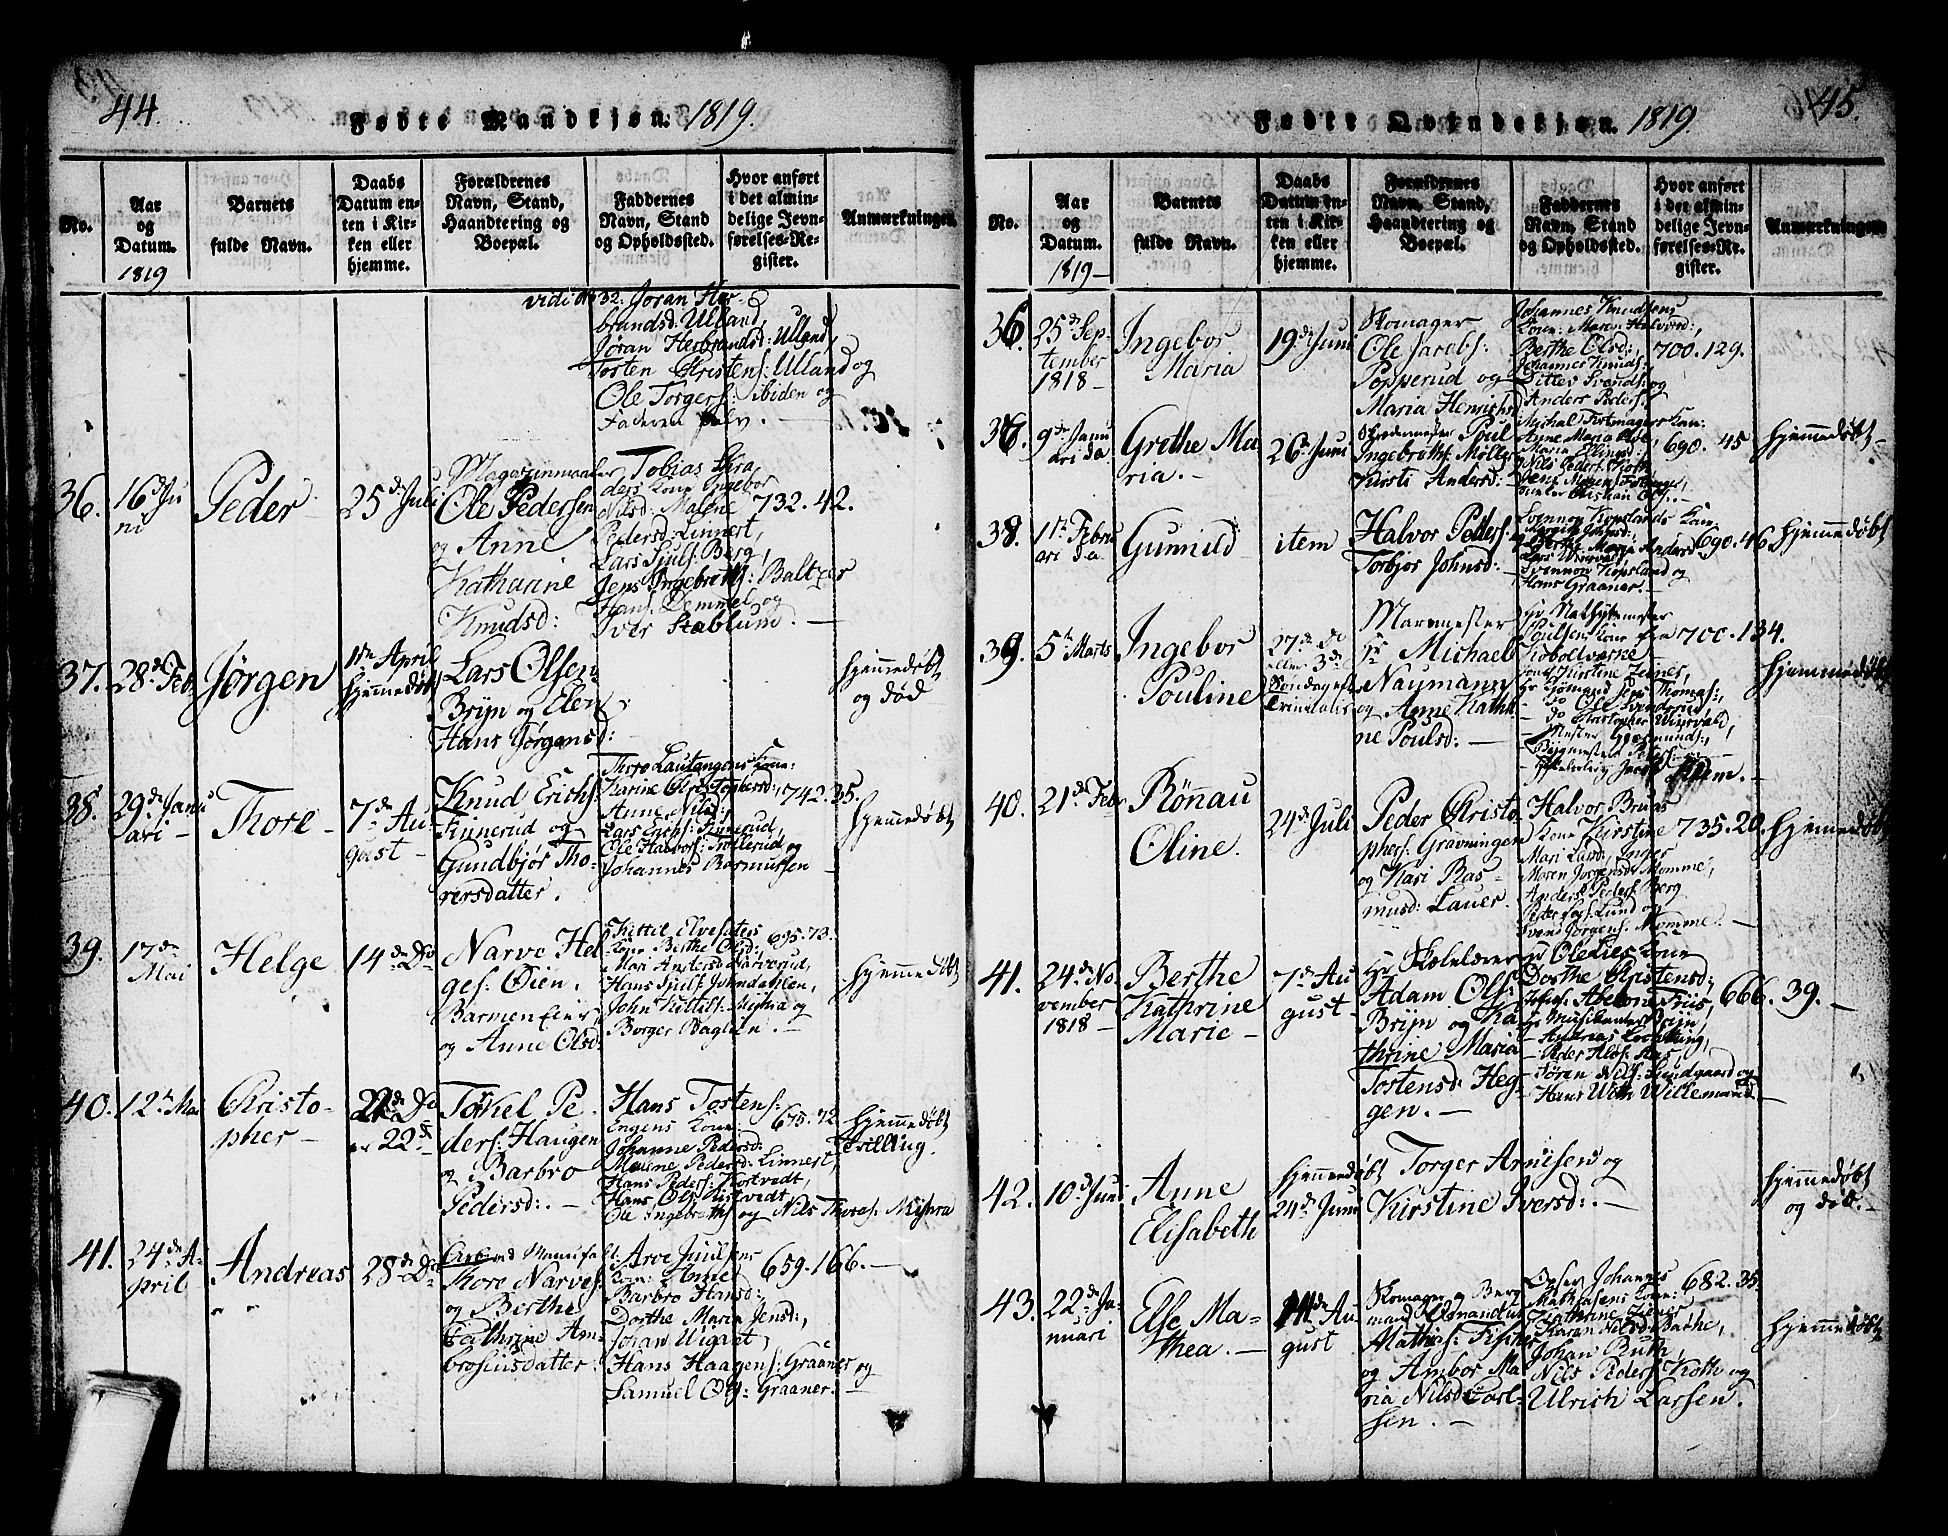 44.
Fødte Mandkjøn: 1819.
No.
Aar
og
Datum.
1819
Barnets
fulde Navn.
Daabs
Datum en-
ten i Kir-
ken eller
hjemme.
Forældrenes
Navn, Stand,
Haandtering og
Boepæl.
Faddernes
Navn, Stand
og Opholdssted.
Hvor anført
i det almin-
delige Jevn-
førelses-Re-
gister.
Anmærkninger.
vidi No 32. Joran Her-
brandsd: Ulland,
Jøran Herbrandsd: Ulland,
Tosten Christens: Ulland og
Ole Torgers: ibiden og
Faderen selv. —
36.
16 d. Ju
ni
Peder
25 de Juli
Magazinmaaler
Ole Pedersen
og Anne
Katharine
Knudsd:
Tobias Skra
ders Kone Ingebor
Nilsd: Malene
Pedersd: Linnert,
Lars Juls: Berg,
Jens Ingebreths: Baltzer
Hans: Demmel og
Iver Stablum. —
732. 42.
37.
28 de Feb.
Jørgen
11te April
hjemmedøbt
Lars Olsen
Bryn og Elen
Hans Jørgensd: —
hjemmedøbt
og død
38.
29 de Janu
ari —
Thore —
7 de Au
gust —
Knud Erichs:
Finnerud og
Gundbjør Tho-
rersdatter.
Thore Lautangens Kone:
Karine Christophersd:,
Anne Nilsd:,
Lars Erichs: Finnerud,
Ole Halvors: Tollerud og
Johannes Rasmussen —
742. 35.
hjemmedøbt
39.
17 de
Mai
Helge
14 de Do
Narve Hel-
ges: Øien,
Barmen Eier,
og Anne Olsd:
Kittil Elvesæters
Kone Berthe Olsd:,
Mari Andersd: Narverud,
Hans Juls: Johndahlen,
John Kittils: Myhra og
Borger Baglien. —
635. 73.
hjemmedøbt
40.
12te Mai
Christo-
pher —
22 de Do
Torkel Pe-
ders: Haugen
og Barbro
Pedersd: —
Hans Tostens:
Engens Kone:
Johanne Pedersd:
Maline Pedersd: Linnert,
Hans Peders: Kortvedt,
Hans Ols: Listvedt,
Ole Ingebreths: og Nils Thoras: Mishra
675. 72
hjemmedøbt
Tvilling.
41.
24 de A-
pril
Andreas
28 de Do
Thore Narves:
og Berthe
Cathrine Am-
brosiusdatter.
Arve Juulsens
Kone: Anne,
Barbro Hansd:,
Dorthe Maria Jensd:,
Johan Wigant,
Hans Haagens: Graaner og
Samuel Ols: Graaner. —
659. 166. —
45.
Fødte Qvindekjøn. 1819.
No.
Aar
og
Datum.
1819 —
Barnets
fulde Navn.
Daabs
Datum en-
ten i Kir-
ken eller
hjemme.
Forældrenes
Navn, Stand,
Haandtering og
Boepæl.
Faddernes
Navn, Stand
og Opholdssted
Hvor anført
i det almin-
delige Jevn-
førelses-Re-
gister.
Anmærkninger
36.
25 de Sep-
tember
1818 —
Ingebor
Maria
19 de Juni
Skomager
Ole Jacobs:
Popperud og
Maria Henrichs
Johannes Knudsens
Kone: Maren Halvord:,
Berthe Olsd:,
Johannes Knuds:
Ditlev Svends: og
Anders Peders:
700. 129.
37.
9 de Janu
ari da
Grethe Ma
ria. —
26 de Juni
Poul
Ingebreths: Møller
Kirsti Andersd: —
Anne Maria Ols:,
Nils Peders: Koth,
690. 45
hjemmedøbt —
38.
1te Febru
ari da
Gunnild
item
Halvor Peders:
Torbjor Johnsd: —
Svennon Kopslands Kone
Berthe Maria Andersd
Svennon Kopsland og
Hans Graaner. —
690. 46
hjemmedøbt
39.
5te Marts
Ingebor
Pouline
27 de Do
eller 3 de
Søndag eft
Trinitatis
Marmester
Hr Michael
Naumann
og Anne Kathri
ne Poulsd: —
Poulsens Kone fra
Koboltværket —
700. 134.
hjemmedøbt
40.
21 de Febr
Rönnau
Oline.
24 de Juli
Peder Christo-
phers: Gravningen
og Kari Ras-
musd: Lauer.
Halvor Bruas
Kone Kirstine
Mari Larsd:, Inger
Maren Jorgensd: Momme,
Anders Peders: Berg
Peder Lars: Lund og
Svend Jörgens: Momme. —
735. 20.
hjemmedøbt
41.
24 de No
vember
1818 —
Berthe
Kathrine
Marie —
7 de Au
gust —
Hr Skolelærer
Adam Ols:
Bryn og Ka
thrine Maria
Tostensd: Heg-
gen. —
Hr Ole Lies Kone
Dorthe Christensd:,
Jfr: Abelone Friis,
Hr Musikanter Bryn,
— Andreas Lochting,
— Peder Alos: Aas,
— Søren Nils: Sundgaard og
— Hans With Willemand. —
666. 39. —
42.
10 d. Juni
Anne
Elisabeth
hjemmedøbt
24 de Juni
Torger Arnisen og
Kirstine Iversd: —
hjemmedøbt
og død. —
43.
22 de Ja-
nuari
Else Ma-
thea. —
14 de Au
gust
Skomager og Berg
mand
Mathis: Fischer
og Ambor Ma
ria Nilsd: Carl-
sen. —
Opsyn Johannes
Mathisens Kone:
Kathrine Jenes
Karen Nilsd: Bathe,
Johan Buth,
Nils Peders: Koth og
Ulrich Larsen.
682. 35.
hjemmedøbt